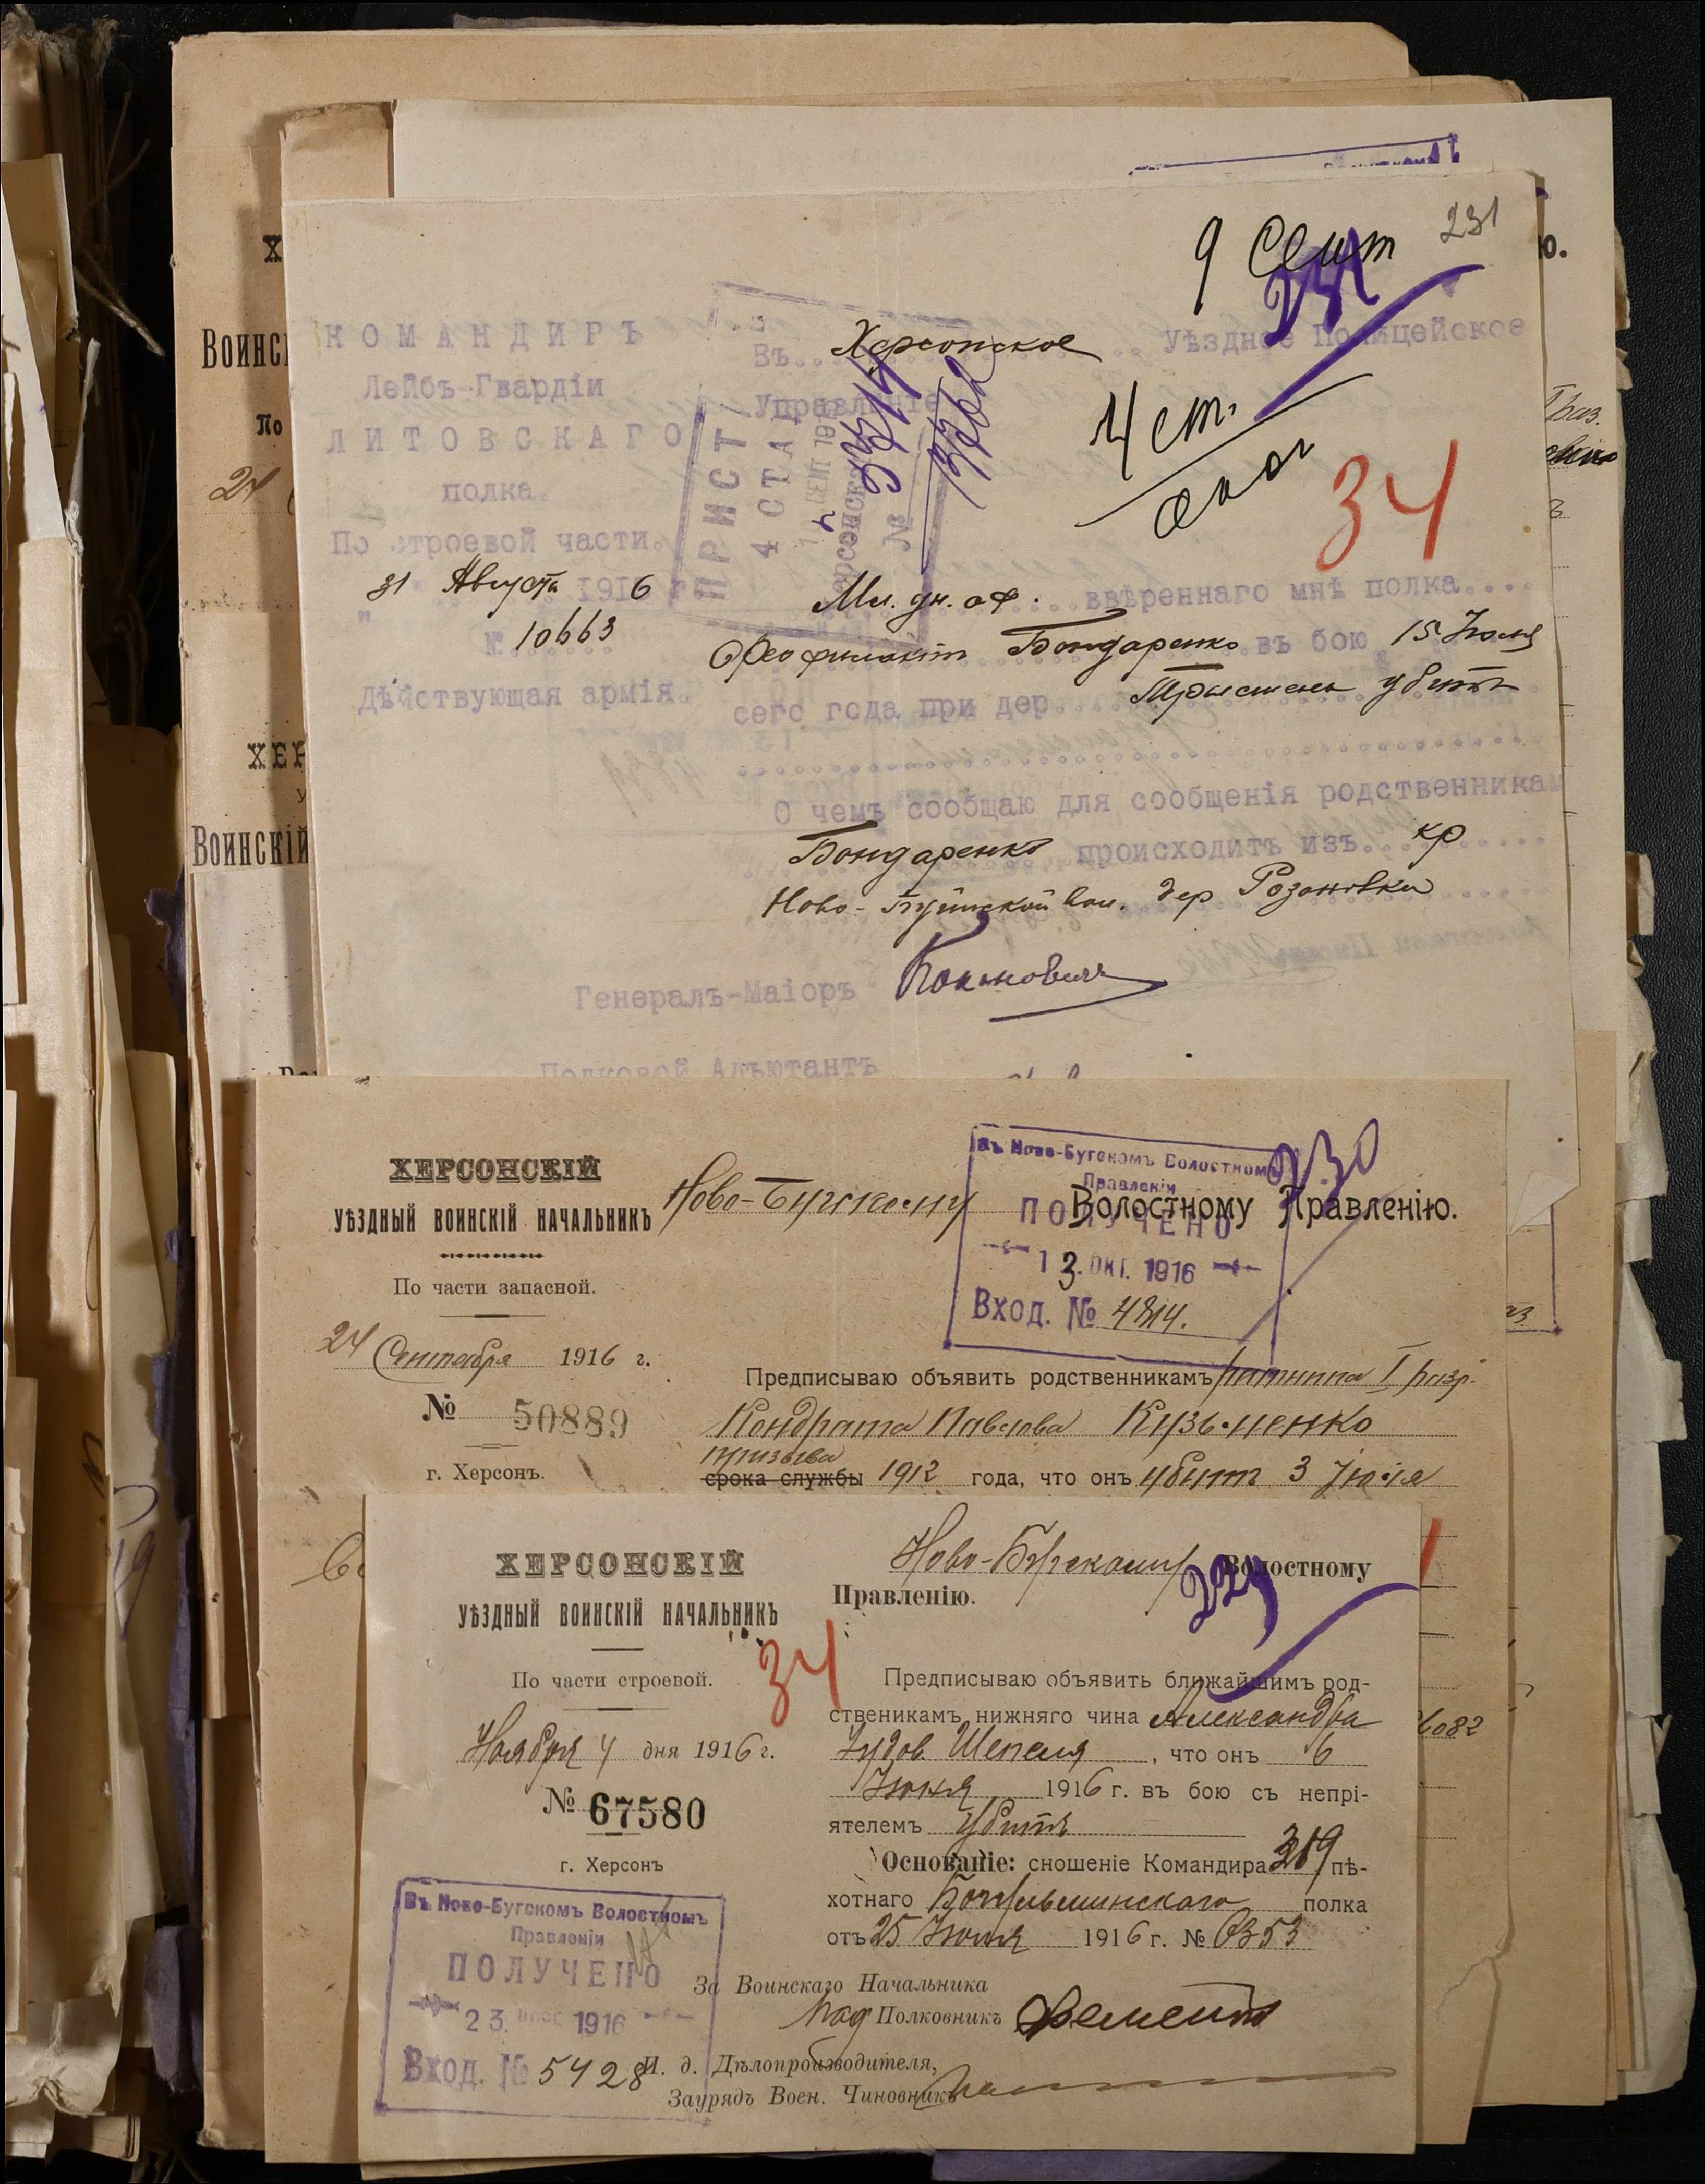 231
9 Сент
231
КОМАНДИРЪ
Лейбъ-Гвардіи
ЛИТОВСКАГО
полка.
По строевой части.
31 Августа 1916 г.
№ 10663
Дѣйствующая армія.
Въ Херсонское Уѣздное Полицейское
Управленіе
ПРИСТ
4 СТАН
СЕНТ 191
ХЕРСОНСК
№
4 ст.
34
Мл. ун. оф. ввѣреннаго мнѣ полка
Феофилактъ Бондаренко въ бою 15 Іюля
сего года при дер. Трыстень убитъ
О чемъ сообщаю для сообщенія родственникам
Бондаренко происходитъ изъ кр
Ново-Бугской вол. дер Розановки
Генералъ-Маіоръ
Полковой Адъютантъ
Х
Воинс
По
24
ХЕР
Воинскій
ХЕРСОНСКІЙ
УѢЗДНЫЙ ВОИНСКІЙ НАЧАЛЬНИКЪ
По части запасной.
24 Сентября 1916 г.
№ 50889
г. Херсонъ.
Ново-Бугскому Волостному Правленію.
230
Въ Ново-Бугскомъ Волостномъ
Правленіи
ПОЛУЧЕНО
13. ОКТ. 1916
Вход. № 4814.
Предписываю объявить родственникамъ ратника I разр.
Кондрата Павлова Кузьменко
призыва
срока службы 1912 года, что онъ убитъ 3 Іюля
6082
ХЕРСОНСКІЙ
УѢЗДНЫЙ ВОИНСКІЙ НАЧАЛЬНИКЪ
По части строевой.
34
Ноября 4 дня 1916 г.
№ 67580
г. Херсонъ
Ново-Бугскому Волостному
Правленію.
229
Предписываю объявить ближайшимъ род-
ственикамъ нижняго чина Александра
Іудов Шепеля, что онъ 6
Іюня 1916 г. въ бою съ непрі-
ятелемъ убитъ
Основаніе: сношеніе Командира 319 пѣ-
хотнаго Бугульминскаго полка
отъ 25 Іюня 1916 г. № 6353
Въ Ново-Бугскомъ Волостномъ
Правленіи
ПОЛУЧЕНО
23. 1916
Вход. № 5428
За Воинскаго Начальника
Под Полковникъ
И. д. Дѣлопроизводителя,
Заурядъ Воен. Чиновникъ